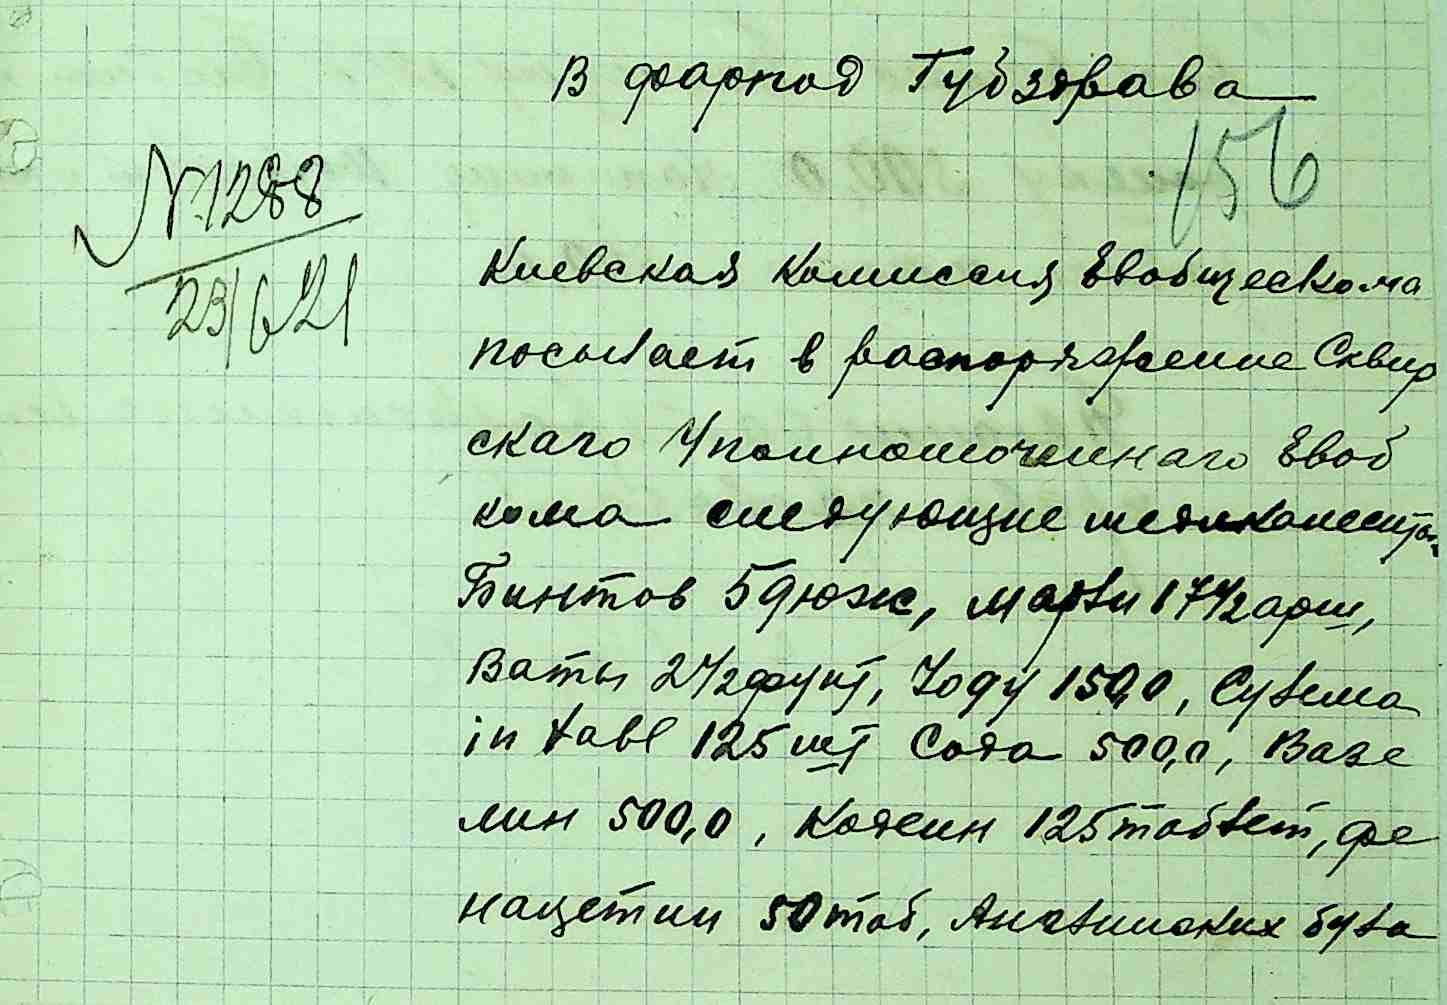 В фарпод Губздрава
156
№ 1288
23/6 21
Киевская комиссия Евобщескома
посылает в распоряжение Сквир
скаго Уполномоченнаго Евоб
кома следующие медикаменты.
Бинтов 5 дюж, марли 17 1/2 арш,
Ваты 2 1/2 фунт, Йоду 150,0, Сулема
in tabl 125 шт Сода 500,0, Вазе
лин 500,0, Кодеин 125 таблет, фе
нацетин 50 таб, Английских була